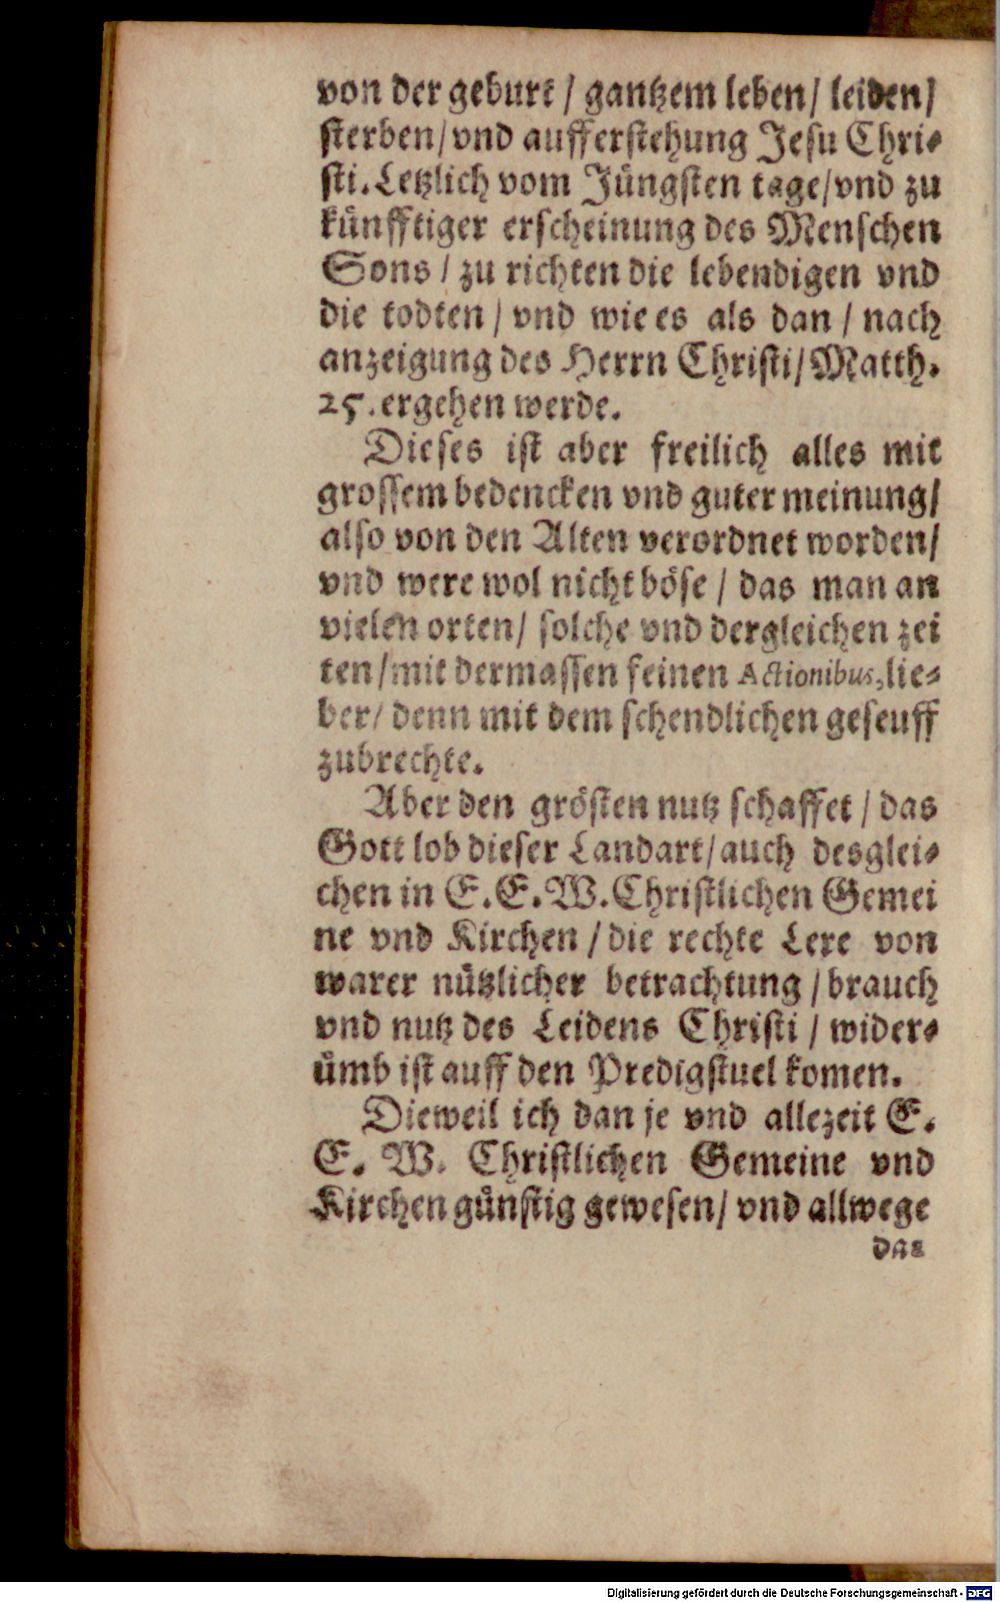 von der geburt / gantzem leben / leiden /
sterben / vnd aufferstehung Jesu Chri-
sti. Letzlich vom Jüngsten tage / vnd zu
künfftiger erscheinung des Menschen
Sons / zu richten die lebendigen vnd
die todten / vnd wie es als dan / nach
anzeigung des Herrn Christi / Matth.
25. ergehen werde.
Dieses ist aber freilich alles mit
grossem bedencken vnd guter meinung /
also von den Alten verordnet worden /
vnd were wol nicht böse / das man an
vielen orten / solche vnd dergleichen zei
ten / mit dermassen feinen Actionibus, lie-
ber / denn mit dem schendlichen geseuff
zubrechte.
Aber den grösten nutz schaffet / das
Gott lob dieser Landart / auch desglei-
chen in E. E. W. Christlichen Gemei
ne vnd Kirchen / die rechte Lere von
warer nützlicher betrachtung / brauch
vnd nutz des Leidens Christi / wider-
ümb ist auff den Predigstuel komen.
Dieweil ich dan je vnd allezeit E.
E. W. Christlichen Gemeine vnd
Kirchen günstig gewesen / vnd allwege
das
Digitalisierung gefördert durch die Deutsche Forschungsgemeinschaft - DFG